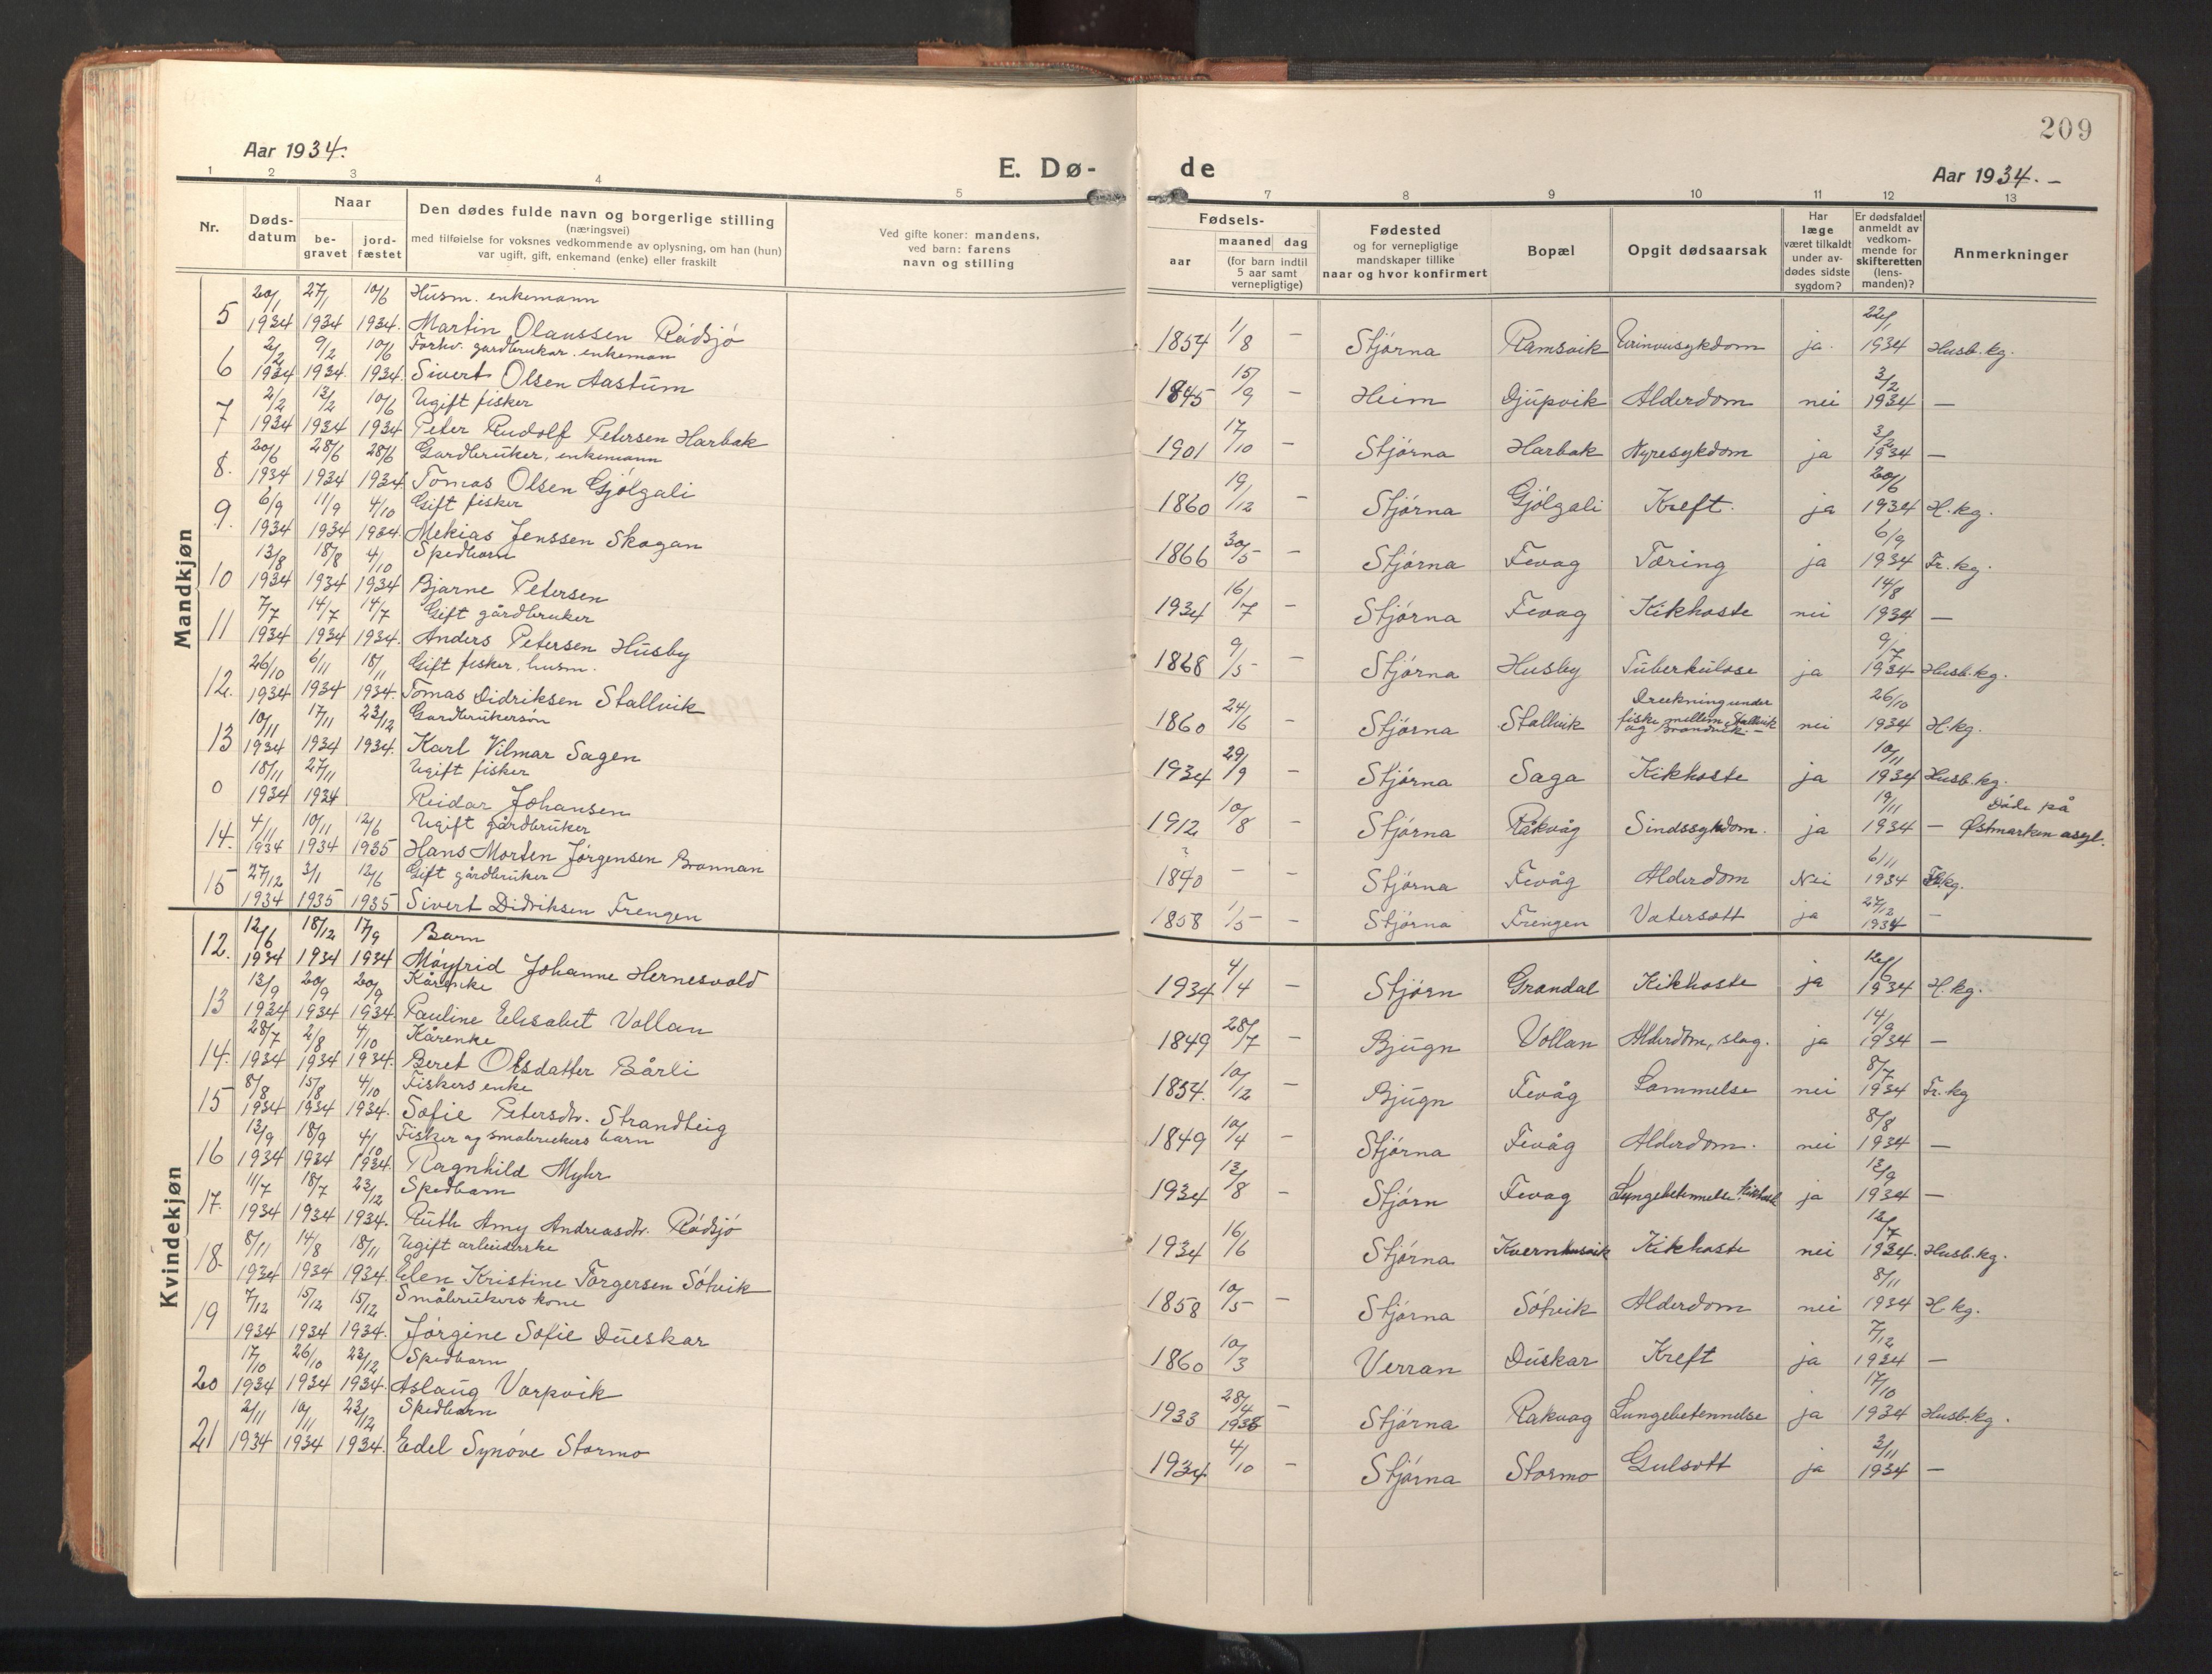 209
Aar 1934.
E. Dø-
de
Aar 1934.-
1 2 3 4 5 7 8 9 10 11 12 13
Nr.
Døds-
datum
Naar
be-
gravet
jord-
fæstet
Den dødes fulde navn og borgerlige stilling
(næringsvei)
med tilføielse for voksnes vedkommende av oplysning, om han (hun)
var ugift, gift, enkemand (enke) eller fraskilt
Ved gifte koner: mandens,
ved barn: farens
navn og stilling
Fødsels-
aar
maaned
dag
(for barn indtil
5 aar samt
vernepligtige)
Fødested
og for vernepligtige
mandskaper tillike
naar og hvor konfirmert
Bopæl
Opgit dødsaarsak
Har
læge
været tilkaldt
under av-
dødes sidste
sygdom?
Er dødsfaldet
anmeldt av
vedkom-
mende for
skifteretten
(lens-
manden)?
Anmerkninger
Mandkjøn
5 20/1 1934 27/1 1934 10/6 1934. Husm. enkemann
Martin Olaussen Rødsjø 1854 1/8 - Stjørna Ramsvik Urinveisykdom ja. 22/1 1934 Husb.kg.
6 2/2 1934 9/2 1934. 10/6 1934. Forhv. gardbruker. enkeman
Sivert Olsen Aastum 1845 15/9 - Heim Djupvik Alderdom nei 3/2 1934 -
7 2/2 1934 13/2 1934 10/6 1934 Ugift fisker
Peter Rudolf Petersen Harbak 1901 17/10 - Stjørna Harbak Nyresykdom ja 3/2 1934 -
8. 20/6 1934 28/6 1934 28/6 1934 Gardbruker, enkemann
Tomas Olsen Gjølgali 1860 19/12 - Stjørna Gjølgali Kreft. ja 20/6 1934 H.kg.
9. 6/9 1934 11/9 1934 4/10 1934. Gift fisker
Mekias Jenssen Skogan 1866 30/5 - Stjørna Fevag Tæring ja 6/9 1934 Fr.kg.
10 13/8 1934 18/8 1934 4/10 1934 Spedbarn
Bjarne Petersen 1934 16/7 - Stjørna Fevag Kikhoste nei 14/8 1934 -
11 7/7 1934 14/7 1934 14/7 1934. Gift gårdbruker
Anders Petersen Husby 1868 9/5 - Stjørna Husby Tuberkulose ja 9/7 1934 Husb.kg.
12. 26/10 1934 6/11 1934 18/11 1934. Gift fisker, husm.
Tomas Didriksen Stallvik 1860 24/6 - Stjørna Stallvik Druckning under
fiske mellem Stallvik
og Brandvik.- nei 26/10 1934 H.kg.
13 10/11 1934 17/11 1934 23/12 1934. Gardbrukersøn
Karl Vilmar Sagen 1934 29/9 - Stjørna Saga Kikhoste ja 10/11 1934 Husb.kg.
0 18/11 1934 27/11 1934 Ugift fisker
Reidar Johansen 1912 10/8 - Stjørna Råkvåg Sindssykdom. ja 19/11 1934 - Døde på
Østmarken asyl.
14. 4/11 1934 10/11 1934 12/6 1935 Ugift gårdbruker
Hans Morten Jørgensen Brannan ? 1840 - - Stjørna Fevåg Alderdom Nei 6/11 1934
15 27/12 1934 3/1 1935 12/6 1935 Gift gårdbruker
Sivert Didriksen Frengen 1858 1/5 - Stjørna Frengen Vatersott ja 27/12 1934 -
Kvindekjøn
12. 12/6 1934 18/12 1934 17/9 1934 Barn
Møyfrid Johanne Hernesvold 1934 4/4 - Stjørn Grandal Kikhoste ja 12/6 1934 H.kg.
13 13/9 1934 20/9 1934 20/9 1934. Kårenke
Pauline Elisabet Vollan 1849 28/7 - Bjugn Vollan Alderdom, slag. ja 14/9 1934 -
14. 28/7 1934 2/8 1934 4/10 1934. Kårenke
Beret Olsdatter Bårli 1854. 10/12 - Bjugn Fevåg Lammelse nei 8/7 1934 Fr.kg
15 8/8 1934 15/8 1934 4/10 1934. Fiskers enke
Sofie Petersdtr. Strandteig 1849 10/4 - Stjørna Fevåg Alderdom. nei 8/8 1934 -
16 13/9 1934 18/9 1934 4/10 1934. Fisker og småbrukers barn
Ragnhild Myhr 1934 13/8 - Stjørn Fevag Lungebetennelse. Kikhoste ja 13/9 1934 -
17. 11/7 1934 18/7 1934 23/12 1934. Spedbarn
Ruth Amy Andreasdtr. Rødsjø 1934 16/6 Stjørna Kvernhusvik Kikhoste nei 12/7 1934. Husb.kg.
18. 8/11 1934 14/8 1934 18/11 1934. Ugift arbeiderske
Elen Kristine Torgersen Søtvik 1858 10/5 - Stjørna Søtvik Alderdom nei 8/11 1934 H.kg.
19 7/12 1934 15/12 1934 15/12 1934. Småbrukers kone
Jørgine Sofie Dueskar 1860 10/3 Verran Duskar Kreft ja 7/12 1934 -
20 17/10 1934 26/10 1934 23/12 1934. Spedbarn
Aslaug Varpvik 1933 28/4 - Stjørna Rakvag Lungebetennelse ja 17/10 1934 Husb.kg.
21 2/11 1934 10/11 1934 23/12 1934. Spedbarn
Edel Synøve Stormo 1934. 4/10 - Stjørna Stormo Gulsott ja 3/11 1934 -